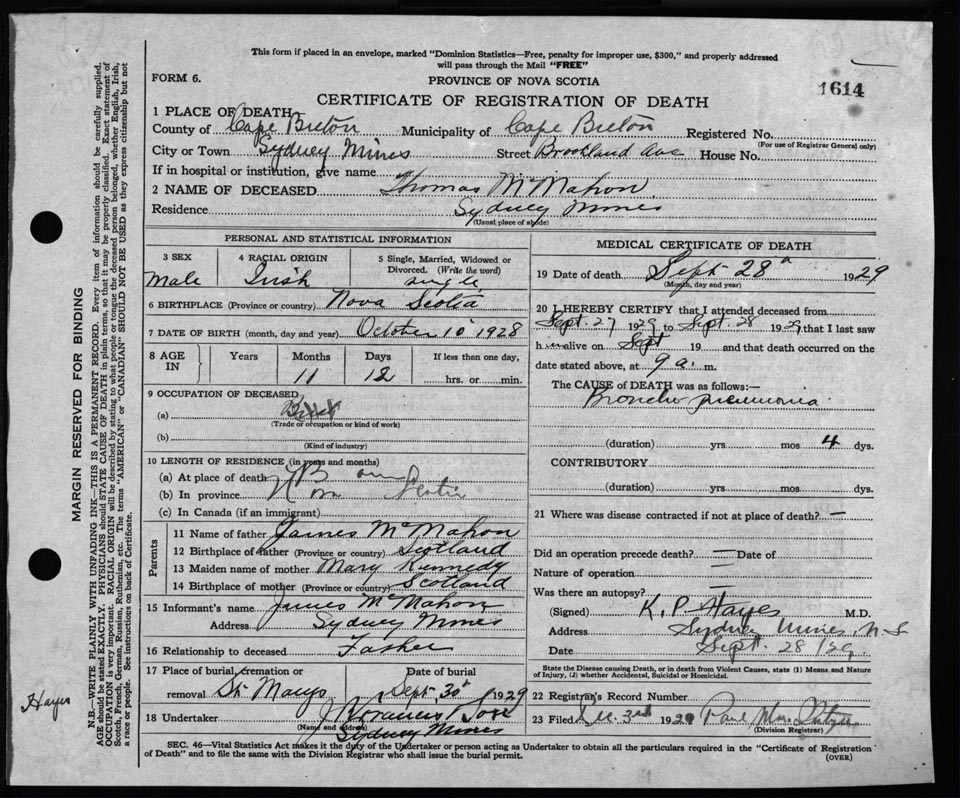 This form if placed in an envelope, marked "Dominion Statistics—Free, penalty for improper use, $300," and properly addressed
will pass through the Mail "FREE"
FORM 6.
PROVINCE OF NOVA SCOTIA
1614
CERTIFICATE OF REGISTRATION OF DEATH
1 PLACE OF DEATH
County of Cape Breton Municipality of Cape Breton Registered No.
(For use of Registrar General only)
City or Town Sydney Mines Street Brookland Ave House No.
If in hospital or institution, give name
2 NAME OF DECEASED Thomas McMahon
Residence Sydney Mines
(Usual place of abode)
PERSONAL AND STATISTICAL INFORMATION
3 SEX Male
4 RACIAL ORIGIN Irish
5 Single, Married, Widowed or Divorced. (Write the word) single
6 BIRTHPLACE (Province or country) Nova Scotia
7 DATE OF BIRTH (month, day and year) October 10 1928
8 AGE IN Years Months 11 Days 12 If less than one day, hrs. or min.
9 OCCUPATION OF DECEASED
(a)
(Trade or occupation or kind of work)
(b)
(Kind of industry)
10 LENGTH OF RESIDENCE (in years and months)
(a) At place of death
(b) In province Scotia
(c) In Canada (if an immigrant)
Parents
11 Name of father James McMahon
12 Birthplace of father (Province or country) Scotland
13 Maiden name of mother Mary Kennedy
14 Birthplace of mother (Province or country) Scotland
15 Informant's name James McMahon
Address Sydney Mines
16 Relationship to deceased Father
17 Place of burial, cremation or removal St. Marys Date of burial Sept 30 1929
18 Undertaker J Francis
(Name and address) Sydney Mines
MEDICAL CERTIFICATE OF DEATH
19 Date of death Sept 28 1929
(Month, day and year)
20 I HEREBY CERTIFY that I attended deceased from
Sept. 27 1929 to Sept. 28 1929 that I last saw
h alive on Sept 19 and that death occurred on the
date stated above, at 9 a. m.
The CAUSE of DEATH was as follows:—
Broncho pneumonia
(duration) yrs mos 4 dys.
CONTRIBUTORY
(duration) yrs mos dys.
21 Where was disease contracted if not at place of death? —
Did an operation precede death? — Date of
Nature of operation —
Was there an autopsy? —
(Signed) K. P. Hayes M.D.
Address Sydney Mines, N.S.
Date Sept. 28/29
State the Disease causing Death, or in death from Violent Causes, state (1) Means and Nature
of Injury, (2) whether Accidental, Suicidal or Homicidal.
22 Registrar's Record Number
23 Filed 3rd 1929
(Division Registrar)
SEC. 46—Vital Statistics Act makes it the duty of the Undertaker or person acting as Undertaker to obtain all the particulars required in the "Certificate of Registration
of Death" and to file the same with the Division Registrar who shall issue the burial permit.
(OVER)
MARGIN RESERVED FOR BINDING
N.B.—WRITE PLAINLY WITH UNFADING INK—THIS IS A PERMANENT RECORD. Every item of information should be carefully supplied.
AGE should be stated EXACTLY. PHYSICIANS should STATE CAUSE OF DEATH in plain terms, so that it may be properly classified. Exact statement of
OCCUPATION is very important. RACIAL ORIGIN will be described by stating to what people or tongue the deceased person belonged, whether English, Irish,
Scotch, French, German, Russian, Ruthenian, etc. The terms "AMERICAN" or "CANADIAN" SHOULD NOT BE USED as they express citizenship but not
a race or people. See instructions on back of Certificate.
Hayes